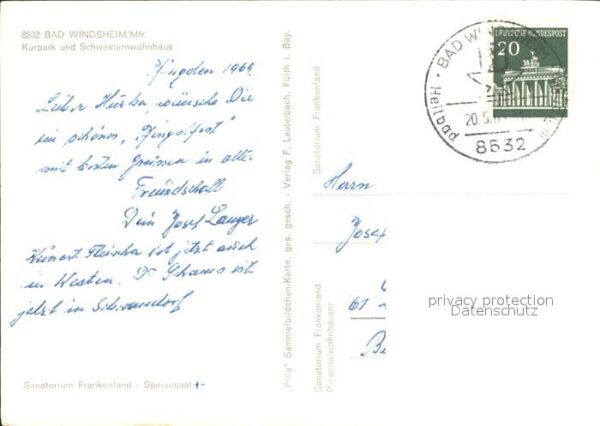 8532 BAD WINDSHEIM/Mfr.
Kurpark und Schwesternwohnhaus
Pfingsten 1969
Lieber wünsche Dir
ein schönes, "Pfingstfest"
mit besten Grüssen in alter
Freundschaft
Dein Josef Langer
ist jetzt auch
im Westen. Dr. ist
jetzt in Schwandorf
Sanatorium Frankenland - Speisesaal
"Frila" Sammelbildchen-Karte, ges. gesch. - Verlag F. Lauterbach, Fürth i. Bay.
Sanatorium Frankenland
Sanatorium Frankenland
Personalwohnhäuser
DEUTSCHE BUNDESPOST
20
BAD WINDSHEIM
Heilbad
20.5.
8532
Herrn
Josef
61
Be
privacy protection
Datenschutz